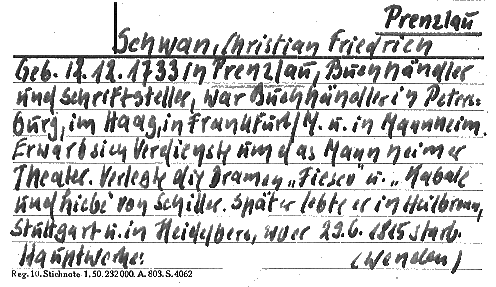 Prenzlau
Schwan, Christian Friedrich
Geb. 12.12.1733 in Prenzlau, Buchhändler
und Schriftsteller, war Buchhändler in Peters-
burg, im Haag, in Frankfurt/M. u. in Mannheim.
Erwarb sich Verdienste um das Mannheimer
Theater. Verlegte die Dramen „Fiesco" u. „Kabale
und Liebe von Schiller. Später lebte er in Heilbronn,
Stuttgart u. in Heidelberg, wo er 29.6.1815 starb.
Hauptwerke: (wenden)
Reg. 10. Stichnote 1. 50. 232000. A. 803. S. 4062